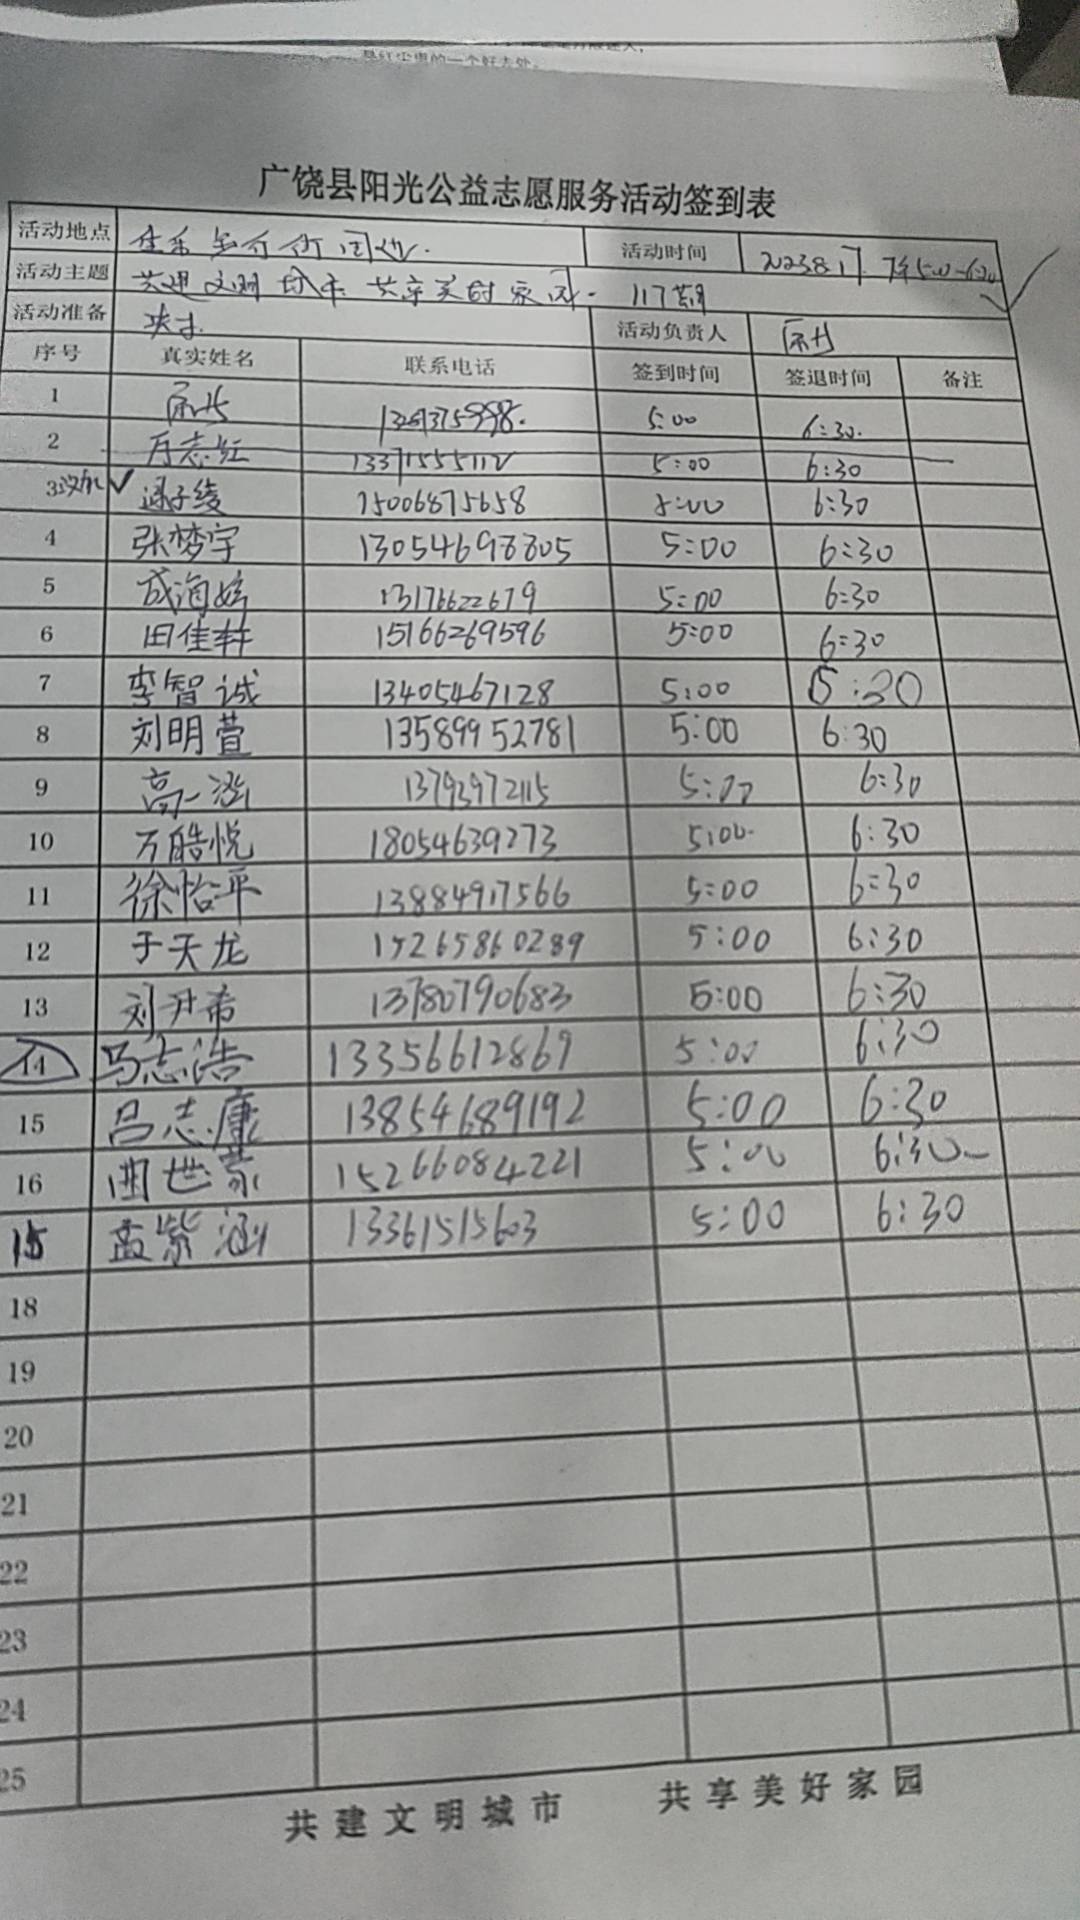 是红尘里的一个好去处。
广饶县阳光公益志愿服务活动签到表
活动地点 活动时间 2023.8.17. 下午5:00-6:30
活动主题 共建文明城市 共享美好家园. 117期
活动准备 活动负责人
序号 真实姓名 联系电话 签到时间 签退时间 备注
1 5:00 6:30.
2 13371555112 5:00 6:30
3 没加 ✓ 逯子绫 15006875658 5:00 6:30
4 张梦宇 13054698805 5:00 6:30
5 成海婷 13176622679 5:00 6:30
6 田佳轩 15166269596 5:00 6:30
7 李智诚 13405467128 5:00
8 刘明萱 13589952781 5:00 6:30
9 高一泓 13793972115 5:00 6:30
10 万皓悦 18054639273 5:00. 6:30
11 徐怡平 13884917566 5:00 6:30
12 于天龙 15265860289 5:00 6:30
13 刘尹希 13780790683 5:00 6:30
14 马志浩 13356612869 5:00 6:30
15 吕志康 13854689192 5:00 6:30
16 曲世豪 15266084221 5:00 6:30
孟紫涵 13361515603 5:00 6:30
18
19
20
21
22
23
24
25
共建文明城市 共享美好家园